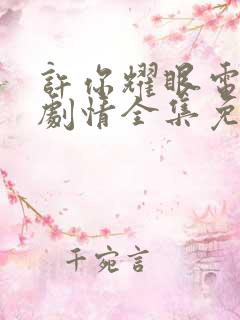 許你耀眼電
劇情全集免
千宛言